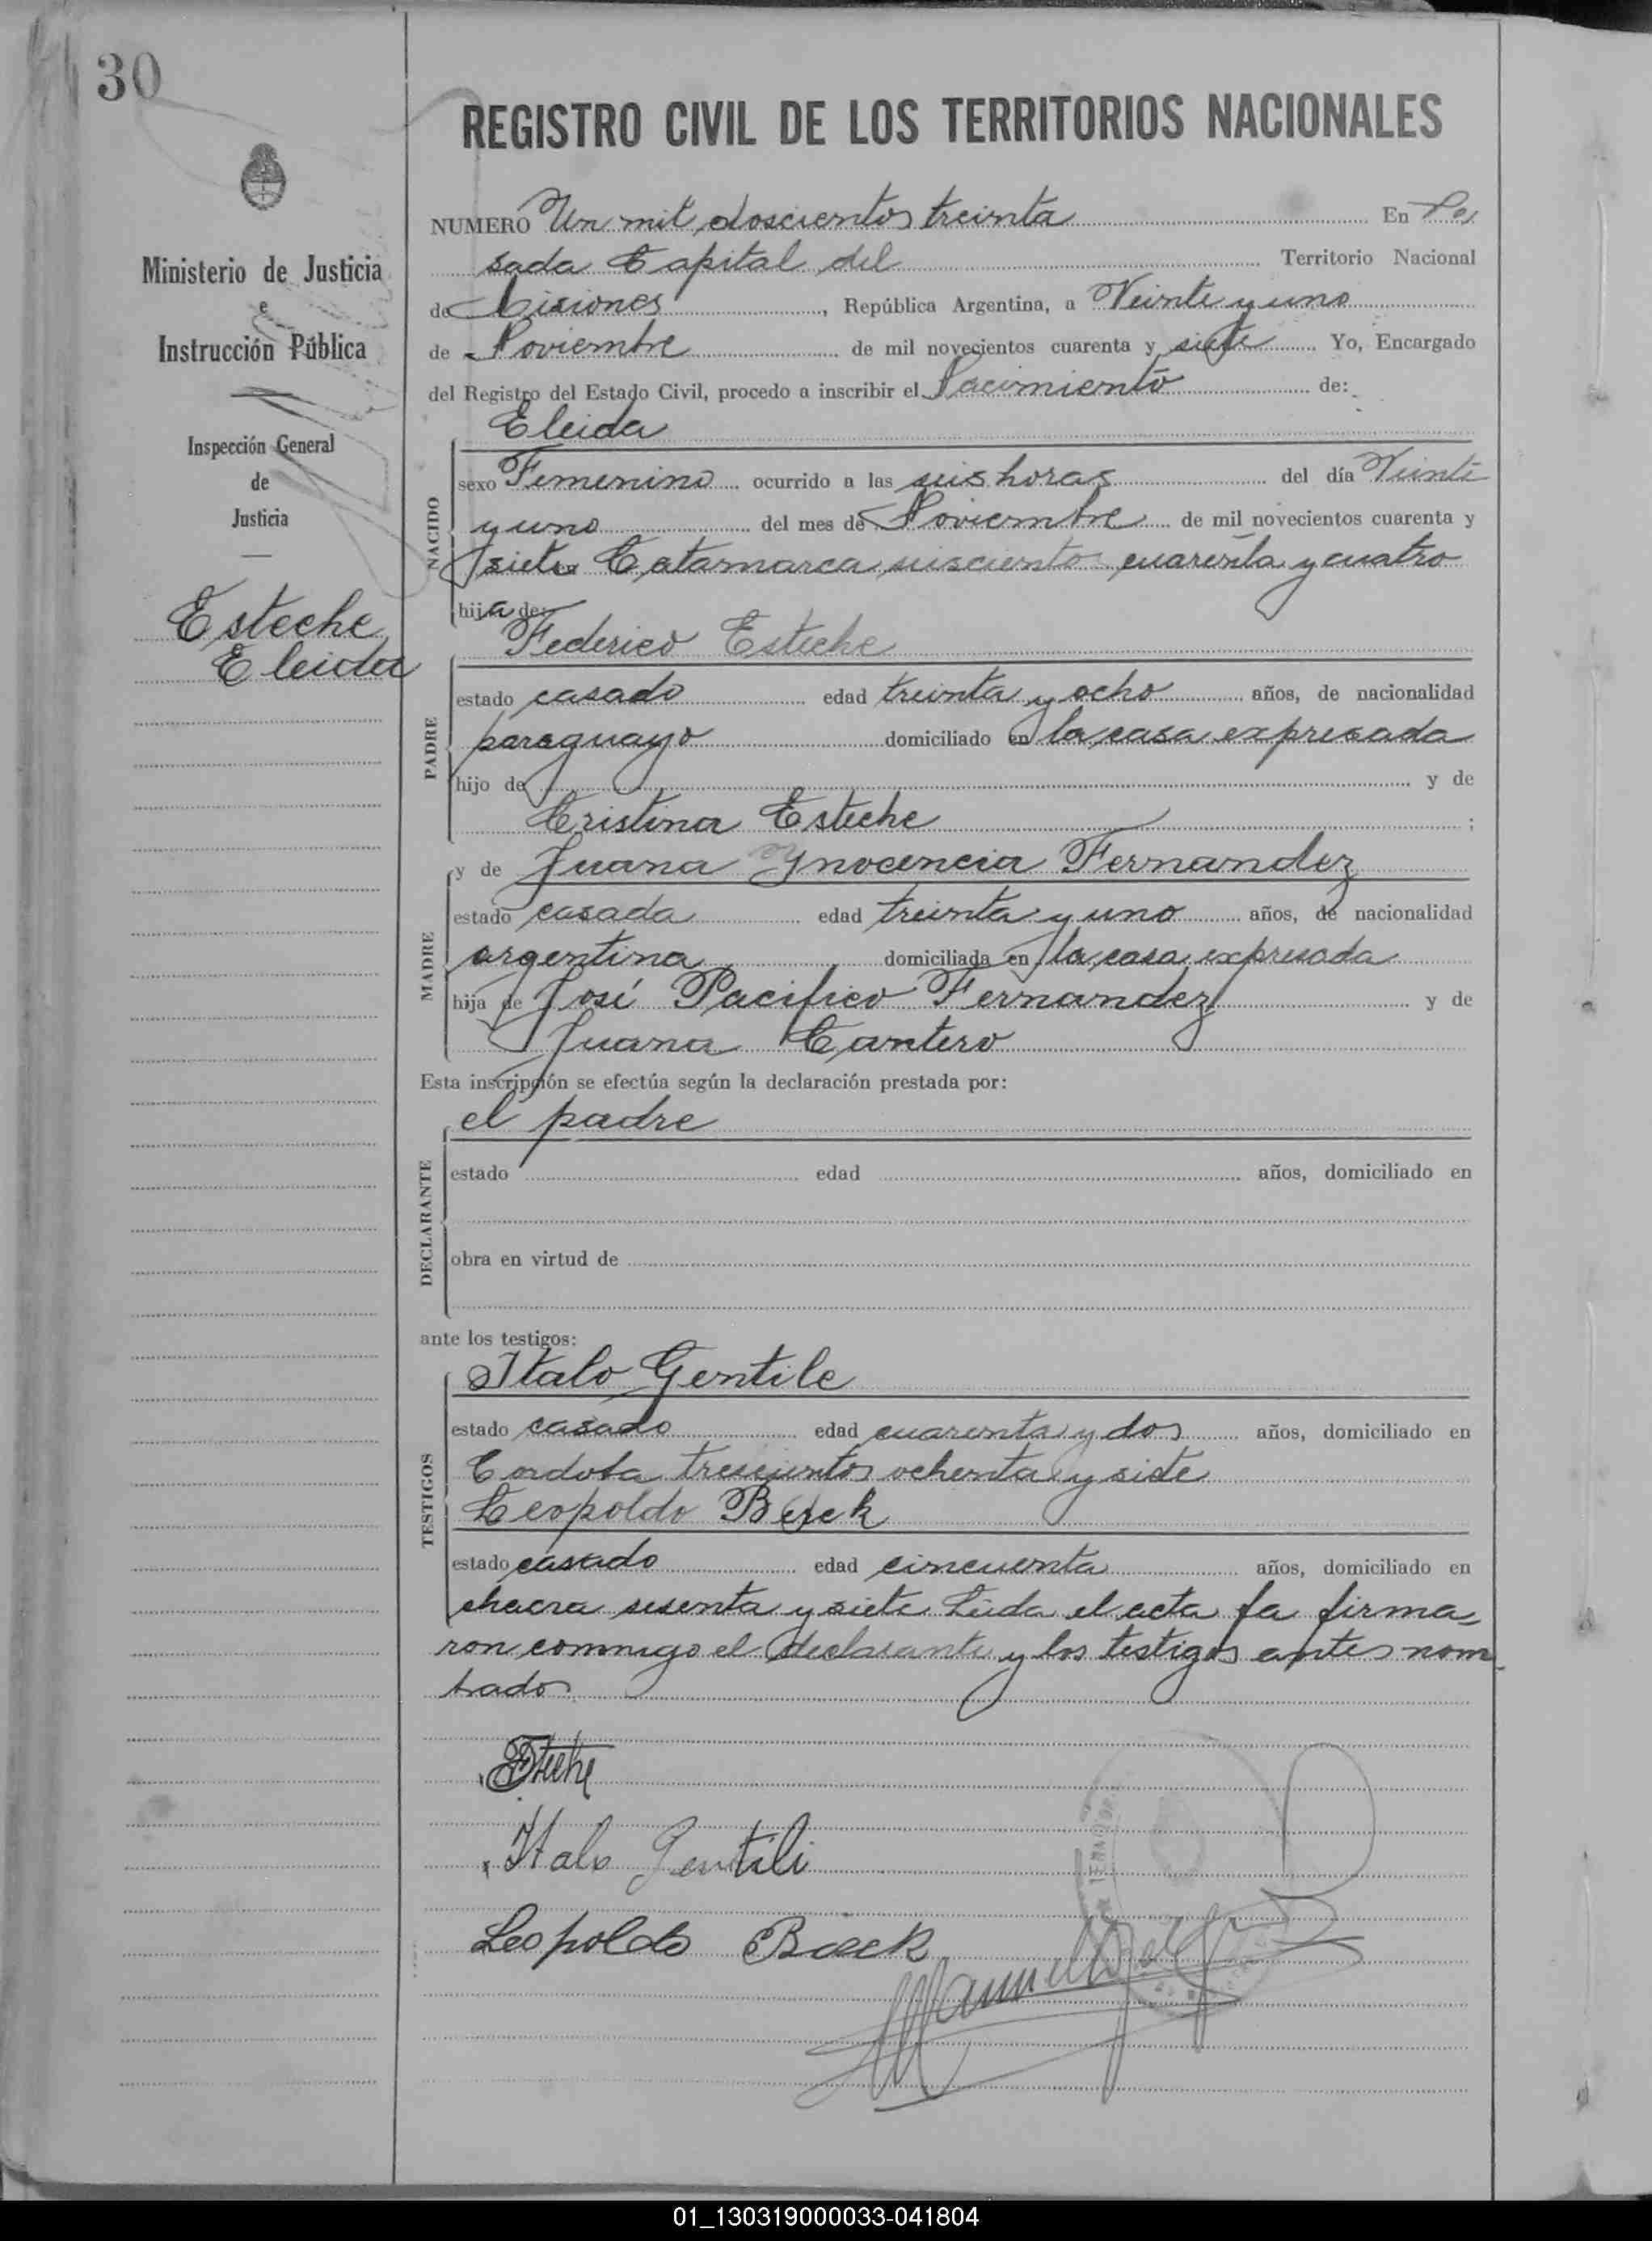 30
REGISTRO CIVIL DE LOS TERRITORIOS NACIONALES
Ministerio de Justicia
e
Instrucción Pública
Inspección General
de
Justicia
Esteche
Eleida
NUMERO Un mil doscientos treinta En Po
sada Capital del Territorio Nacional
de Misiones, República Argentina, a Veinte y uno
de Noviembre de mil novecientos cuarenta y siete Yo, Encargado
del Registro del Estado Civil, procedo a inscribir el Nacimiento de:
Eleida
NACIDO
sexo Femenino ocurrido a las seis horas del día Veinte
y uno del mes de Noviembre de mil novecientos cuarenta y
siete Catamarca seiscientos cuarenta y cuatro
hija de:
Federico Esteche
PADRE
estado casado edad treinta y ocho años, de nacionalidad
paraguayo domiciliado en la casa expresada
hijo de y de
Cristina Esteche ;
MADRE
y de Juana Ynocencia Fernandez
estado casada edad treinta y uno años, de nacionalidad
argentina domiciliada en la casa expresada
hija de José Pacifico Fernandez y de
Juana Cantero
Esta inscripción se efectúa según la declaración prestada por:
el padre
DECLARANTE
estado edad años, domiciliado en
obra en virtud de
ante los testigos:
Italo Gentile
TESTIGOS
estado casado edad cuarenta y dos años, domiciliado en
Cordoba trescientos ochenta y siete
Leopoldo Beck
estado casado edad cincuenta años, domiciliado en
chacra sesenta y siete Leida el acta la firma=
ron conmigo el declarante y los testigos antes nom
brados
Esteche
Italo Gentili
Leopoldo Boeck
Manuel
01_130319000033-041804